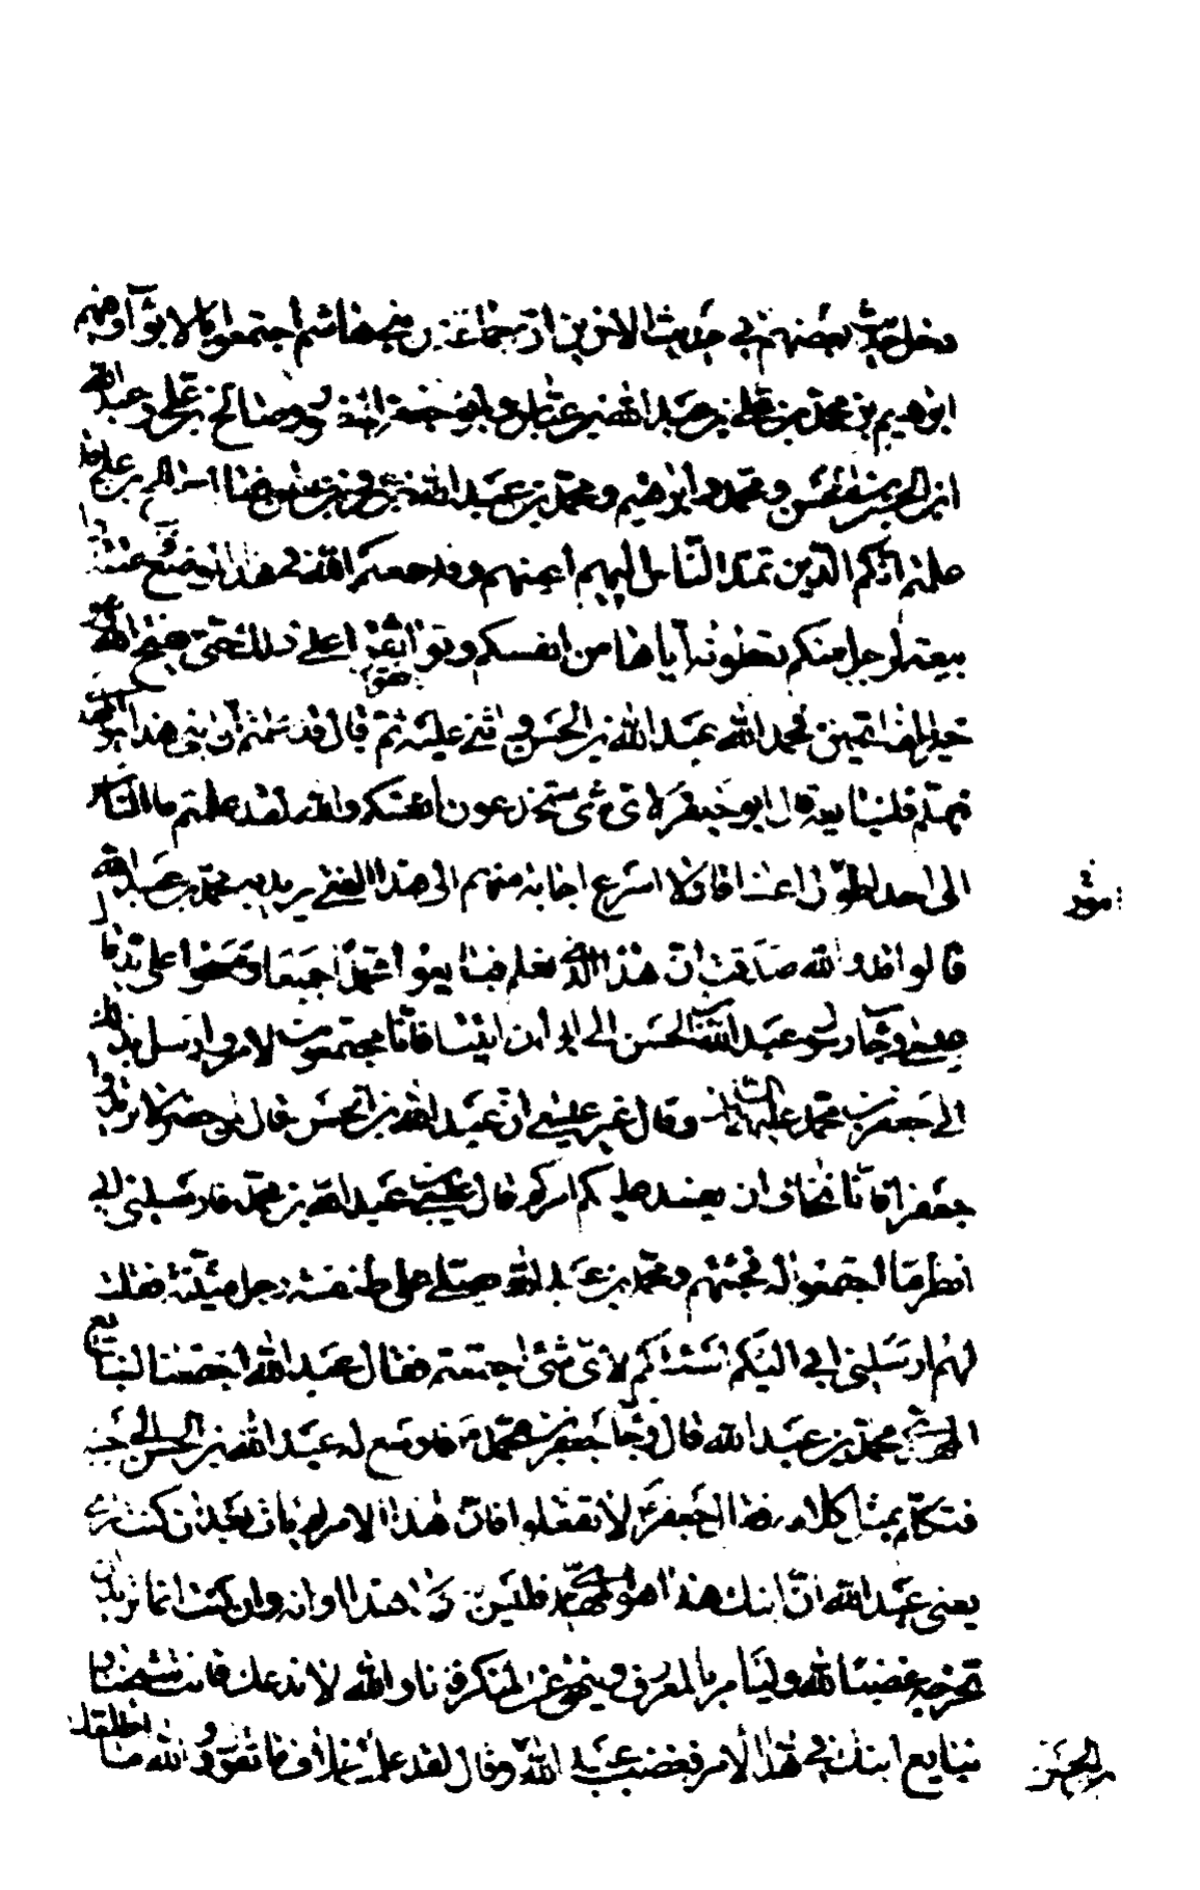 دخل حديث بعضهم في حديث الاخرين ان جماعة من بني هاشم اجتمعوا بالابواء وفيهم
ابراهيم بن محمد بن علي بن عبد الله بن عباس وابو جعفر المنصور وصالح بن علي وعبد الله
ابن الحسن بن الحسن ومحمد وابراهيم ومحمد بن عبد الله بن عمرو بن عثمان فقال صالح بن علي قد
علمتم انكم الذين تمد الناس اليهم اعينهم وقد جمعكم الله في هذا الموضع فاعقدوا
بيعة لرجل منكم تعطونه اياها من انفسكم وتواثقوا على ذلك حتى يفتح الله وهو
خير الفاتحين فحمد الله عبد الله بن الحسن واثنى عليه ثم قال قد علمتم ان ابني هذا هو المهدي
فهلم فلنبايعه قال ابو جعفر لاي شيء تخدعون انفسكم والله لقد علمتم ما الناس
الى احد اطول اعناقا ولا اسرع اجابة منهم الى هذا الفتى يريد به محمد بن عبد الله
قالوا قد والله صدقت ان هذا الذي نعلم فبايعوا محمدا جميعا ومسحوا على يده قال
عيسى وجاء رسول عبد الله بن الحسن الى ابي ان ائتنا فانا مجتمعون لامر وارسل بذلك
الى جعفر بن محمد عليه السلام وقال غير عيسى ان عبد الله بن الحسن قال لمن حضر لا تريدوا
جعفرا فانا نخاف ان يفسد عليكم امركم قال عيسى بن عبد الله بن محمد فارسلني ابي
انظر ما اجتمعوا له فجئتهم ومحمد بن عبد الله يصلي على طنفسة رحل مثنية فقلت
لهم ارسلني ابي اليكم اسئلكم لاي شيء اجتمعتم فقال عبد الله اجتمعنا لنبايع
المهدي محمد بن عبد الله قال وجاء جعفر بن محمد فاوسع له عبد الله بن الحسن الى جنبه
فتكلم بمثل كلامه فقال جعفر لا تفعلوا فان هذا الامر لم يات بعد ان كنت ترى
يعني عبد الله ان ابنك هذا هو المهدي فليس به ولا هذا اوانه وان كنت انما تريد ان
تخرجه غضبا لله وليامر بالمعروف وينهى عن المنكر فانا والله لا ندعك فانت شيخنا و
نبايع ابنك في هذا الامر فغضب عبد الله وقال لقد علمت خلاف ما تقول والله ما اطلعك
بن الحسن